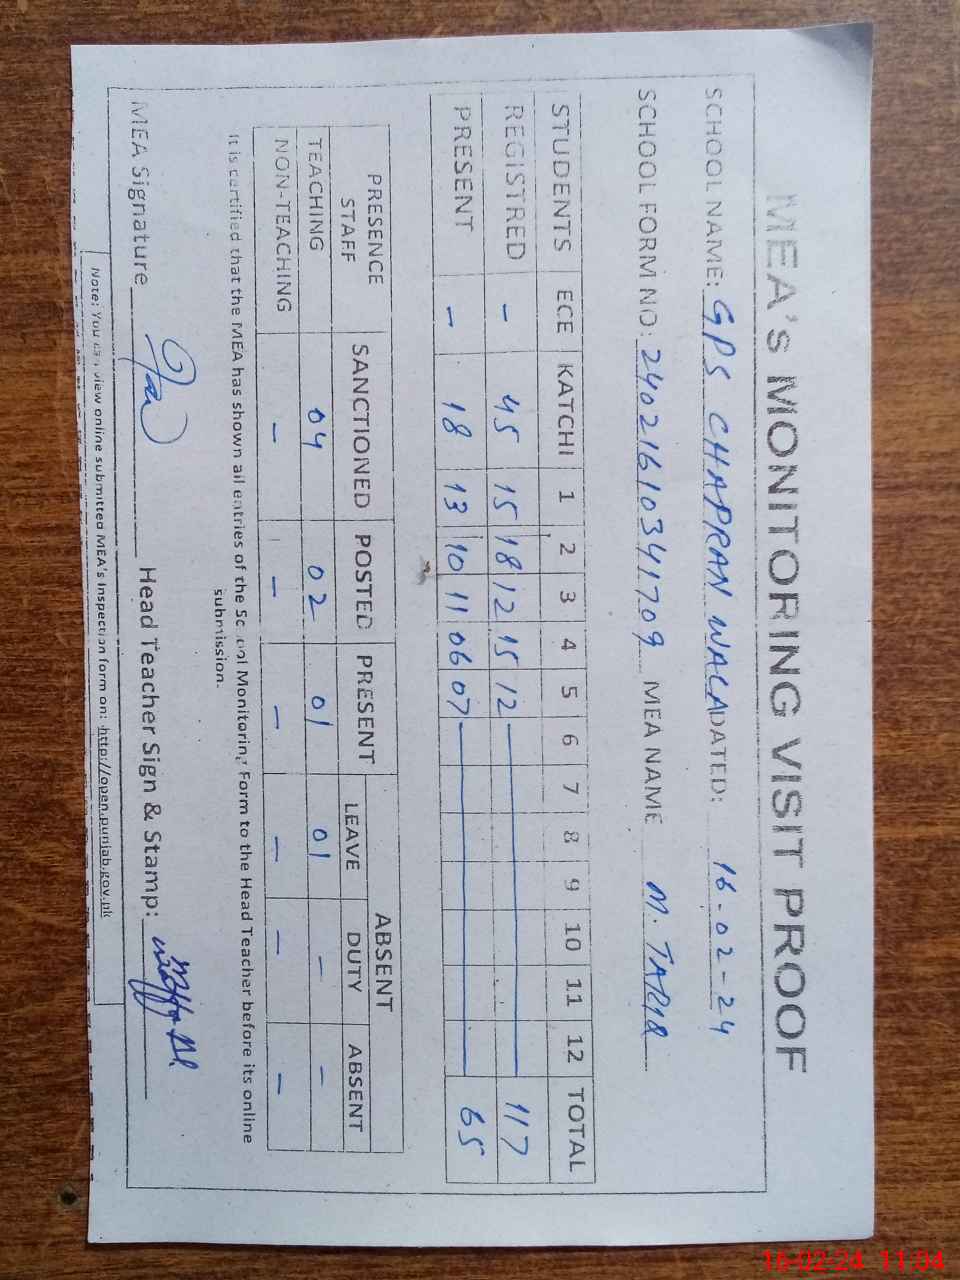 MEA's MONITORING VISIT PROOF
SCHOOL NAME: GPS CHAPRAN WALA DATED: 16-02-24
SCHOOL FORM NO: 24021610341709 MEA NAME M. TARIQ
STUDENTS ECE KATCHI 1 2 3 4 5 6 7 8 9 10 11 12 TOTAL
REGISTRED - 45 15 18 12 15 12 117
PRESENT - 18 13 10 11 06 07 65
PRESENCE STAFF SANCTIONED POSTED PRESENT ABSENT
LEAVE DUTY ABSENT
TEACHING 04 02 01 01 - -
NON-TEACHING - - - - - -
It is certified that the MEA has shown all entries of the School Monitoring Form to the Head Teacher before its online
submission.
MEA Signature Head Teacher Sign & Stamp:
Note: You can view online submitted MEA's Inspection form on: http://open.punjab.gov.pk
16-02-24 11:04